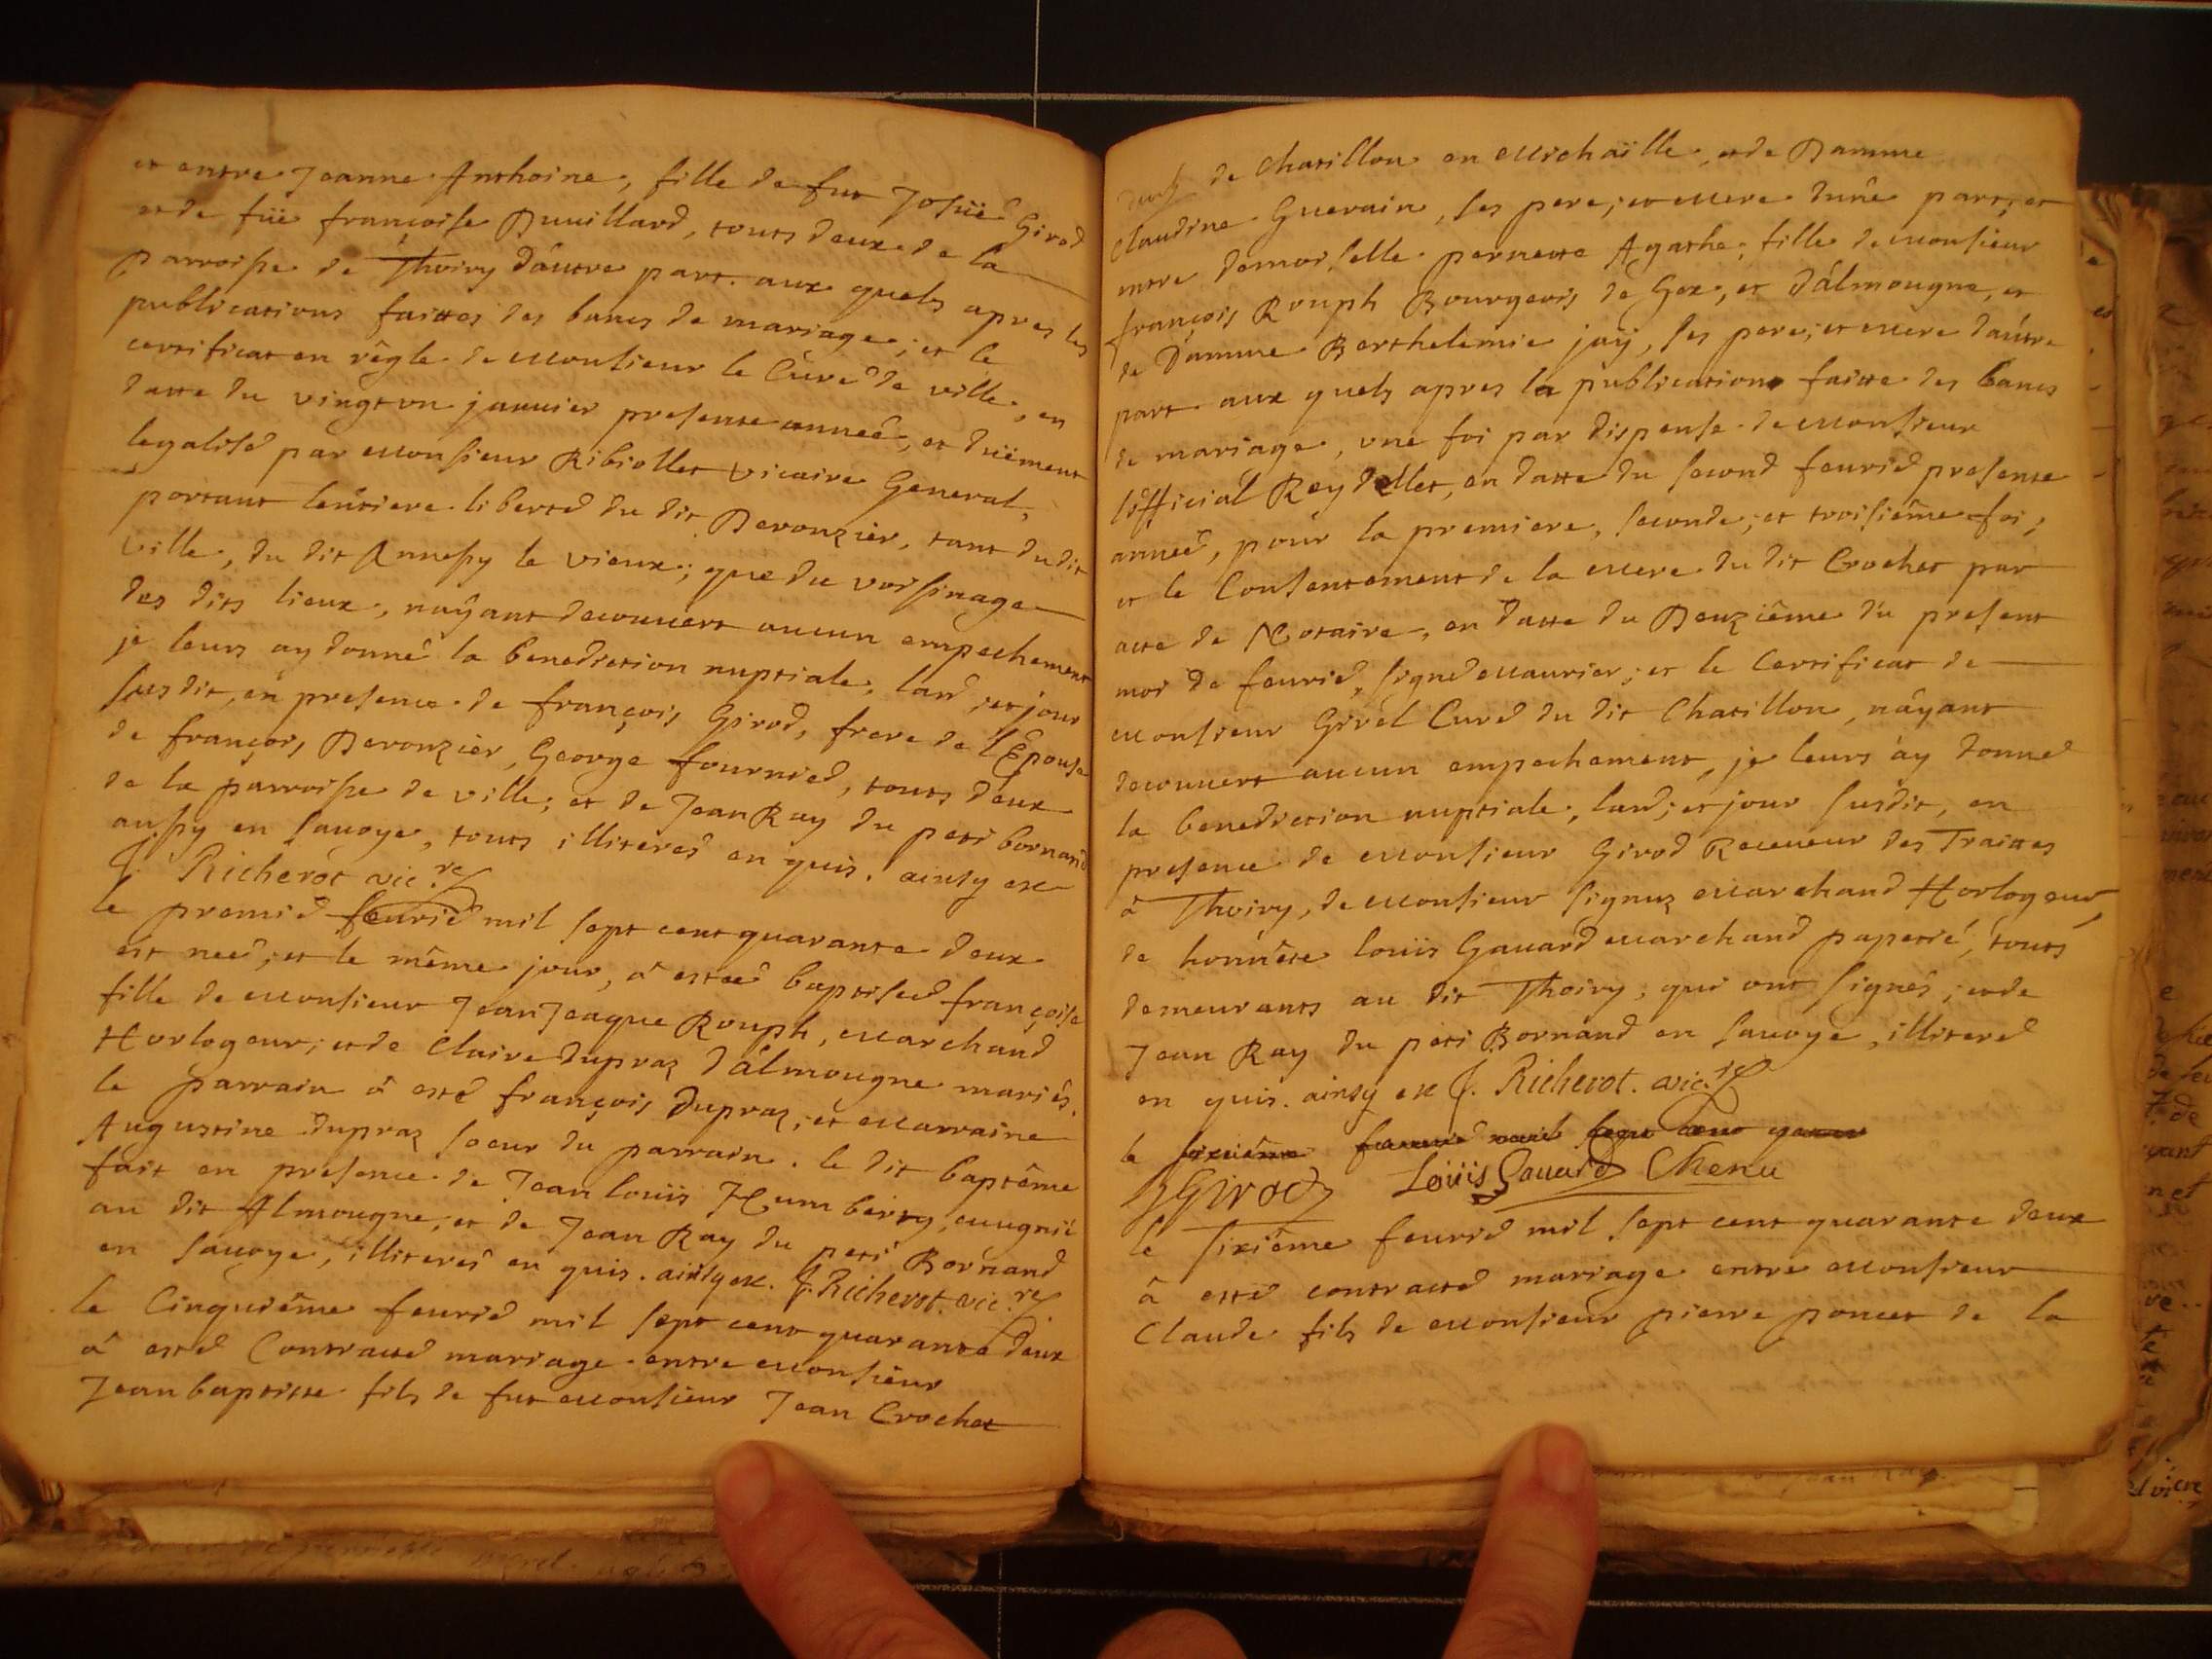 et entre Jeanne Anthoine, fille de fut Josüé Girod
et de füe françoise Duuillard, touts deux de la
parroisse de Thoiry d'autre part. aux quels apres les
publications faittes des bancs de mariage; et le
certificat en règle de Monsieur le Curé de ville, en
datte du vingt vn januier presente année, et düement
legalisé par Monsieur Ribiollet vicaire General,
portant l'entiere liberté du dit Deronzier, tant du dit
ville, du dit Annessy le vieux; que du voissinage
des dits lieux, nâyant decouuert aucun empechement
je leurs ay donné la benediction nuptiale, l'an, et jour
susdit, en presence de françois Girod, frere de l'Epouse
de françois Deronzier, George fournier, touts deux
de la parroisse de ville; et de Jean Ray du peti bornand
aussy en sauoye, touts illiterés en quis. ainsy est
J. Richerot vic.re
le premié feurié mil sept cent quarante deux
est neé, et le même jour, â esteé baptiseé françoise
fille de Monsieur Jean Jeaque Rouph, Marchand
Horlogeur; et de Claire Dupraz d'âlmougne mariés.
le parrain â esté françois Dupraz; et Marraine
Augustine Dupraz soeur du parrain. le dit baptême
fait en presence de Jean louïs Humbérsy, mugnié
au dit Almougne, et de Jean Ray du peti Bornand
en sauoye, illiterés en quis. ainsy est. J. Richerot. vic.re
le Cinquiême feurié mil sept cent quarante deux
â esté Contracté mariage entre Monsieur
Jean baptiste fils de fut Monsieur Jean Crochet
de Chatillon en Michaille, et de Damme
Claudine Guerain, ses pere, et Mere d'une part; et
entre demoiselle pernette Agathe, fille de Monsieur
françois Rouph Bourgeois de Gex, et d'âlmougne, et
de Damme Berthelemie jaÿ, ses pere, et Mere d'autre
part. aux quels apres la publication faitte des bancs
de mariage, vne foi par dispense de Monsieur
l'official Reydellet, en datte du second feurié presente
année, pour la premiere, seconde, et troisiême foi,
et le Consentement de la Mere du dit Crochet par
acte de Notaire, en datte du Deuziême du present
moi de feurié, signé Maurier, et le Certificat de
Monsieur Girel Curé du dit Chatillon, nâyant
decouuert aucun empechement, je leurs ay donné
la benediction nuptiale, l'an, et jour susdit, en
presence de Monsieur Girod Receueur des Traittes
â Thoiry, de Monsieur signuz Marchand Horlogeur,
de honnête louïs Gauard Marchand papetié, touts
demeurants au dit Thoiry, qui ont signés; et de
Jean Ray du peti Bornand en sauoye, illiteré
en quis. ainsy est J. Richerot. vic.re
le sixiême feurié mil sept cent quara
J Girod Loüis Gauard Chenu
le sixiême feurié mil sept cent quarante deux
â esté contracté mariage entre Monsieur
Claude fils de Monsieur pierre poncet de la